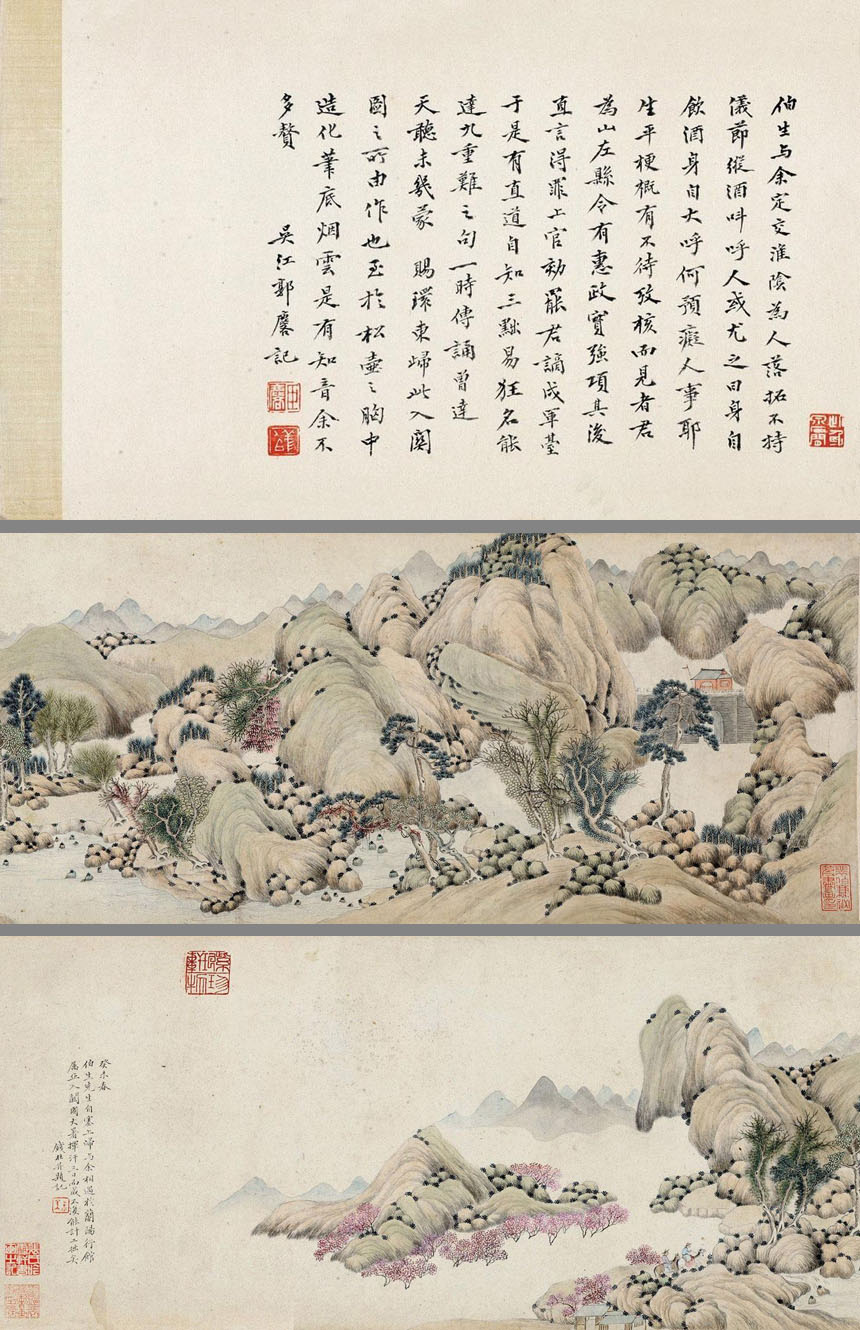 伯生与余定交淮陰為人落拓不持
儀節縱酒叫呼人或尤之曰身自
飲酒身自大呼何預癡人事耶
生平梗概有不待攷核而見者君
為山左縣令有惠政實強項其後
直言得罪上官劾罷君謫戍軍臺
于是有直道自知三黜易狂名能
達九重難之句一時傳誦曾達
天聽未幾蒙 賜環東歸此入關
圖之所由作也至於松壷之胸中
造化筆底烟雲是有知音余不
多贅
吳江郭麐記
癸未春
伯生先生自塞上歸与余相遇於蘭陽行館
屬入關圖大暑揮汗三日而成不復能計工拙矣
錢杜并題記